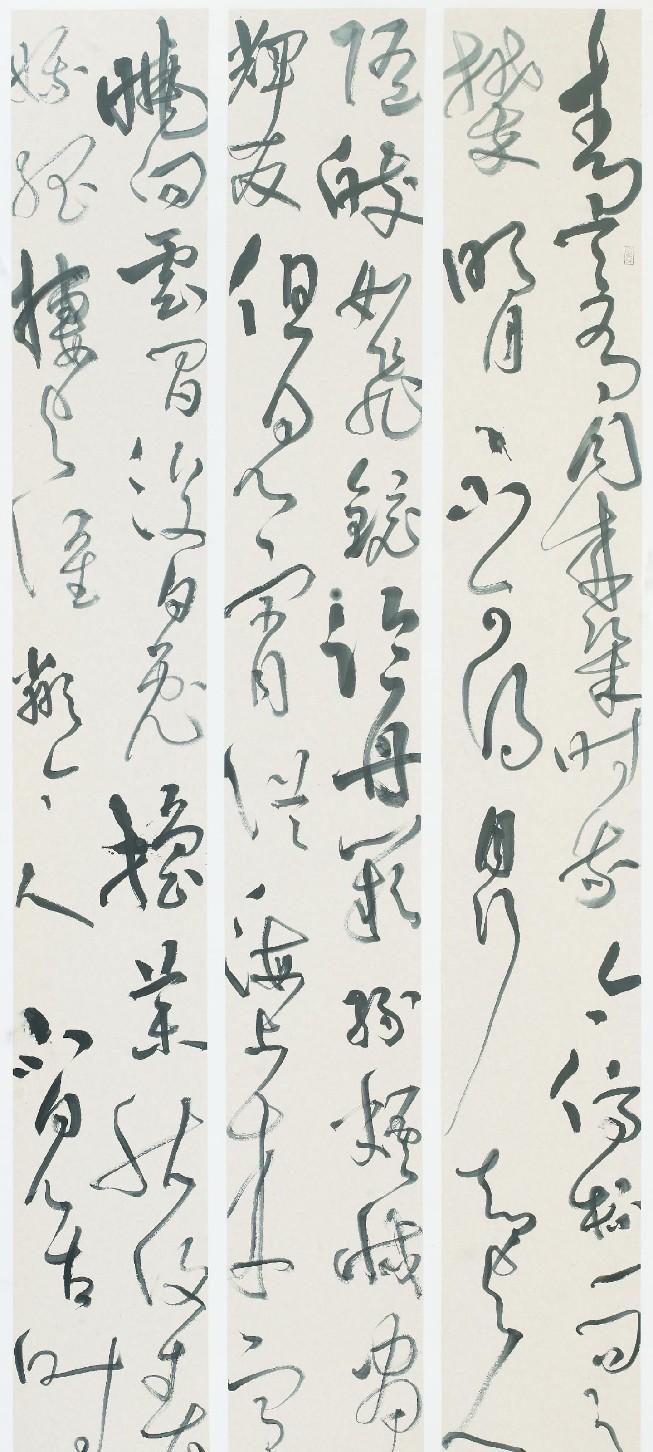 青天有月來幾時我今停杯一問之
攀明月不可得月行却與人
隨皎如飛鏡臨丹闕綠煙滅盡
輝發但見宵從海上來寧
曉向雲間没白兔擣藥秋復春
娥孤棲與誰鄰今人不見古時